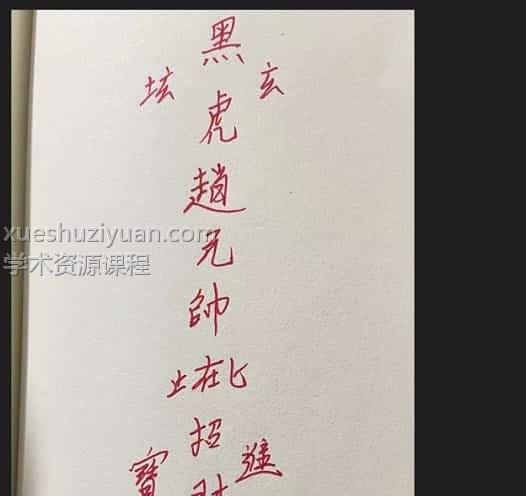 玄進
黑虎趙元帥止在匕招
坛寶
xueshuziyuan.com
学术资源课程